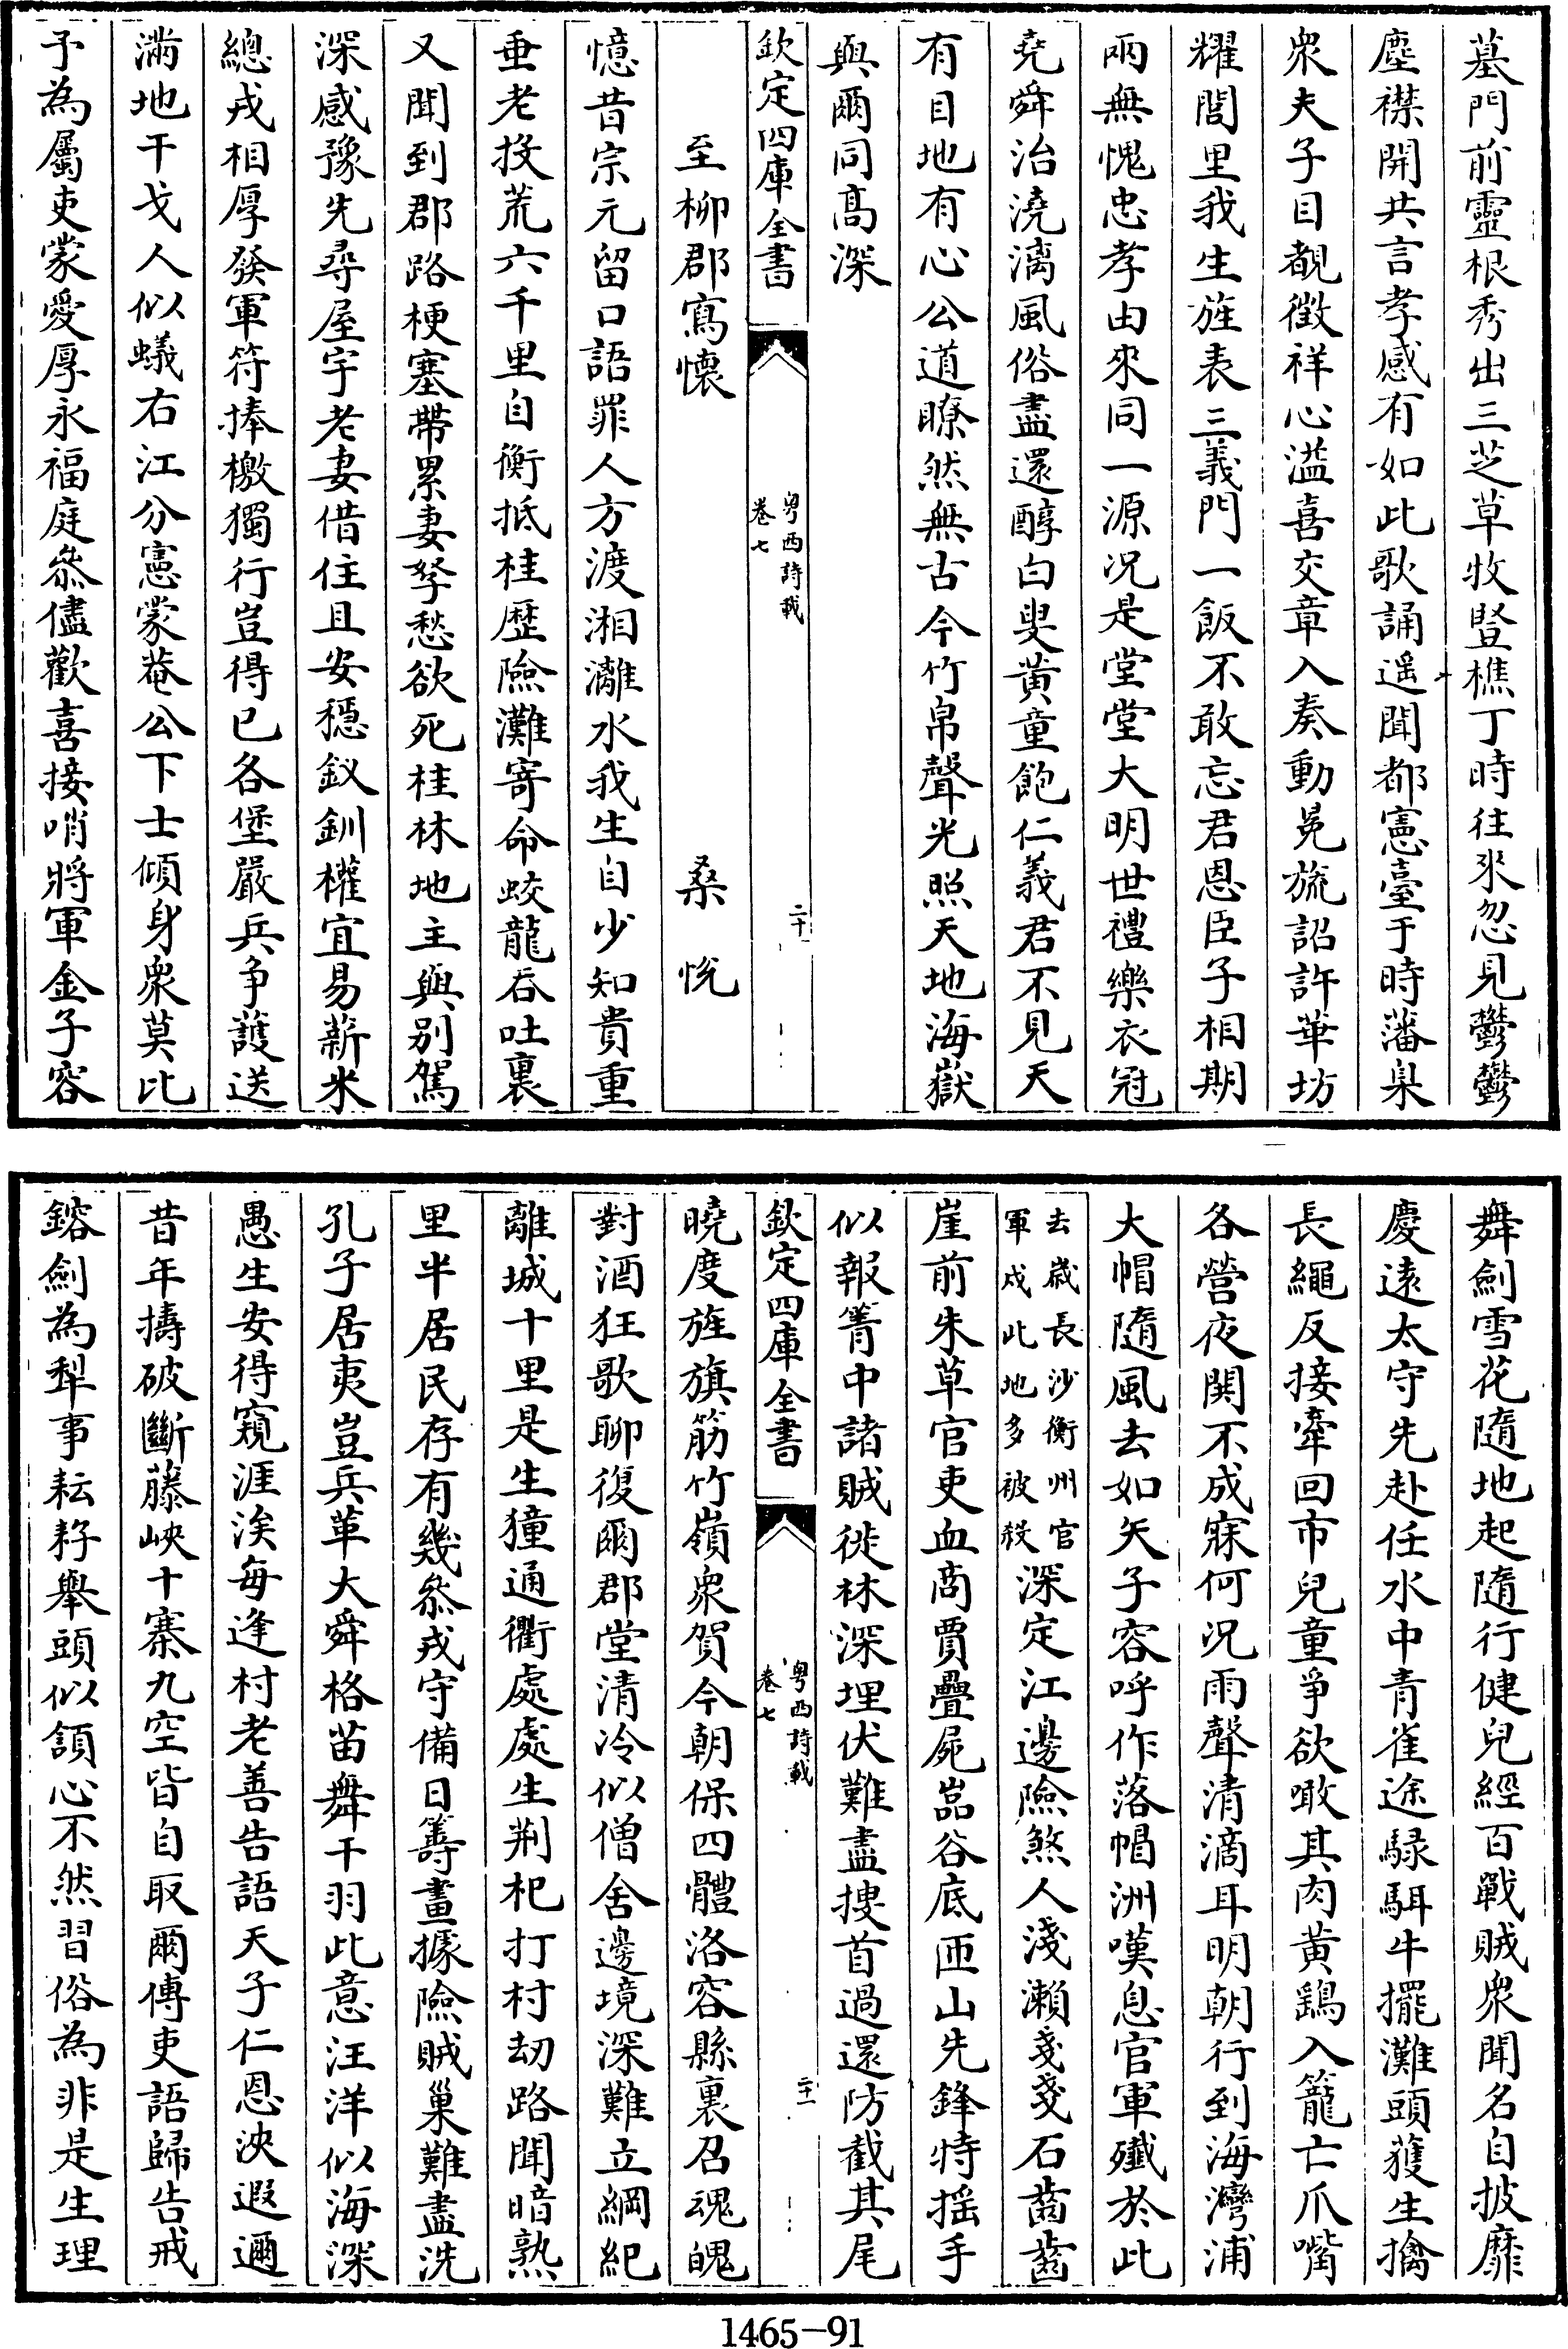 墓門前靈根秀出三芝草牧豎樵丁時往來忽見鬱鬱
塵襟開共言孝感有如此歌誦遥聞都憲臺于時藩臬
衆夫子目覩徵祥心溢喜交章入奏動冕旒詔許華坊
耀閭里我生旌表三義門一飯不敢忘君恩臣子相期
兩無愧忠孝由來同一源况是堂堂大明世禮樂衣冠
堯舜治澆漓風俗盡還醇白叟黄童飽仁義君不見天
有目地有心公道瞭然無古今竹帛聲光照天地海嶽
與爾同高深
欽定四庫全書
粤西詩載
卷七
二十
至柳郡寫懷 桑悅
憶昔宗元留口語罪人方渡湘灕水我生自少知貴重
垂老投荒六千里自衡抵桂歷險灘寄命蛟龍吞吐裏
又聞到郡路梗塞帶累妻孥愁欲死桂林地主與别駕
深感豫先尋屋宇老妻借住且安穩釵釧權宜易薪米
總戎相厚發軍符捧檄獨行豈得已各堡嚴兵争護送
滿地干戈人似蟻右江分憲蒙菴公下士傾身衆莫比
予為屬吏蒙愛厚永福庭叅儘歡喜接哨將軍金子容
舞劍雪花隨地起隨行健兒經百戰賊衆聞名自披靡
慶遠太守先赴任水中青雀途騄駬牛擺灘頭獲生擒
長繩反接牽回市兒童爭欲噉其肉黄鷄入籠亡爪嘴
各營夜閧不成寐何况雨聲清滴耳明朝行到海灣浦
大帽隨風去如矢子容呼作落帽洲嘆息官軍殱於此
去歲長沙衡州官
軍戍此地多被殺
深定江邊險煞人淺瀨戔戔石齒齒
崖前朱草官吏血商賈疊屍嵓谷底匝山先鋒恃摇手
似報箐中諸賊徙林深埋伏難盡搜首過還防截其尾
欽定四庫全書
粤西詩載
卷七
二十一
曉度旌旗筋竹嶺衆賀今朝保四體洛容縣裏召魂魄
對酒狂歌聊復爾郡堂清冷似僧舍邊境深難立綱紀
離城十里是生獞通衢處處生荆杞打村刼路聞暗熟
里半居民存有幾叅戎守備日籌畫據險賊巢難盡洗
孔子居夷豈兵革大舜格苗舞干羽此意汪洋似海深
愚生安得窺涯涘每逢村老善告語天子仁恩浹遐邇
昔年擣破斷藤峽十寨九空皆自取爾傳吏語歸告戒
鎔劍為犂事耘耔舉頭似頷心不然習俗為非是生理
1465-91